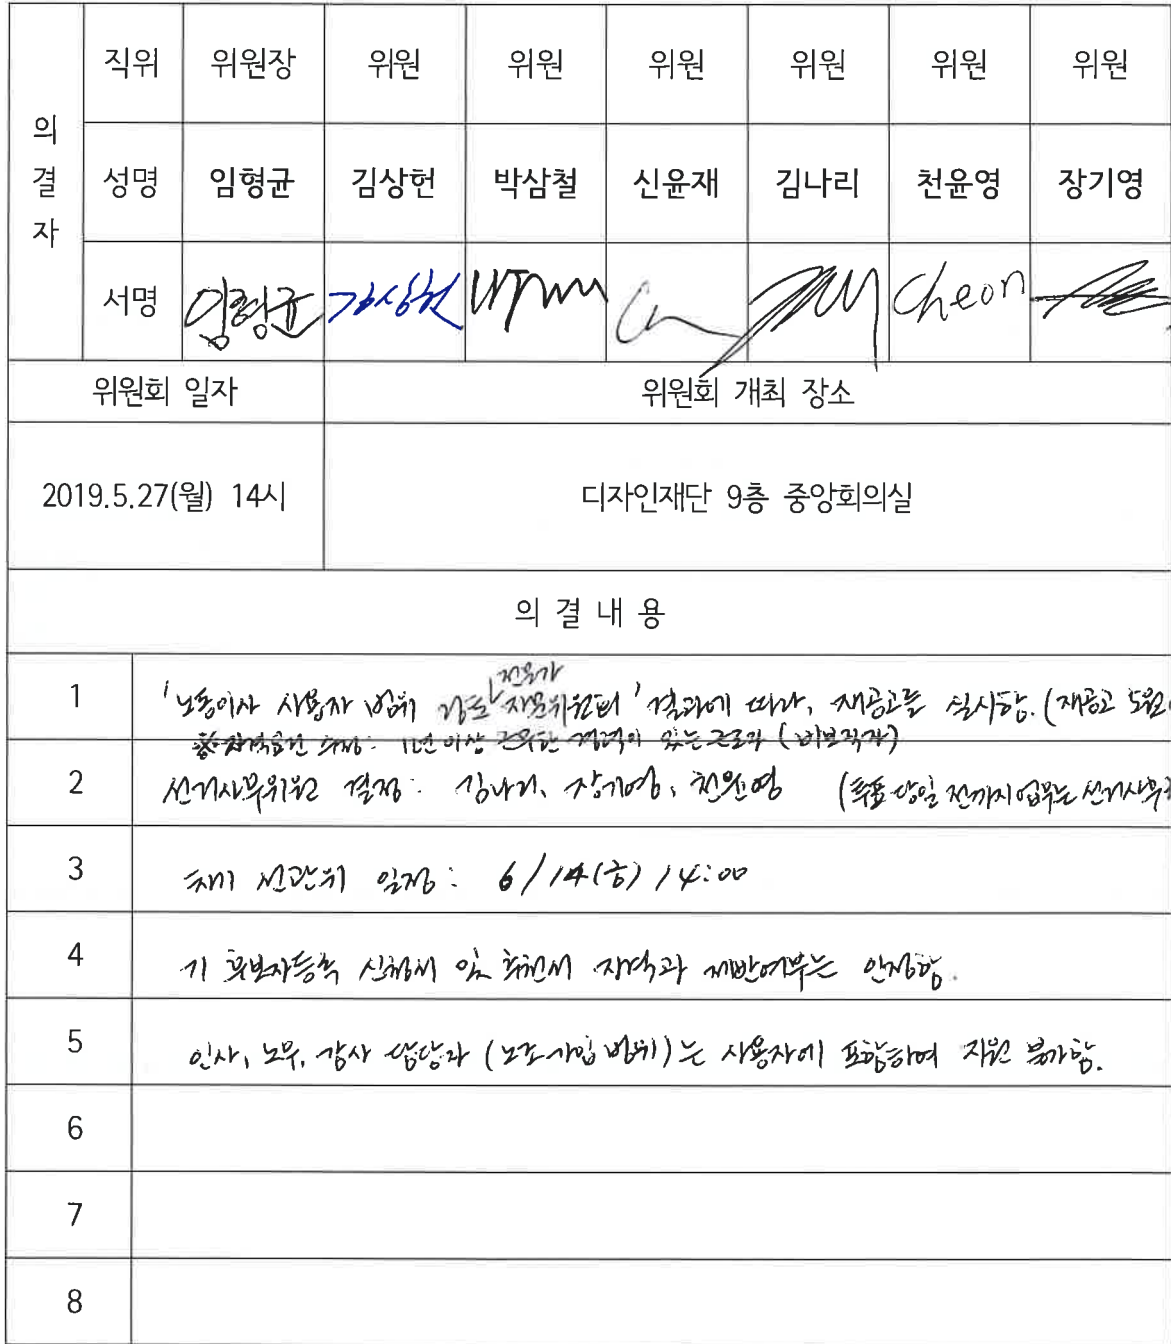 의결자
직위 위원장 위원 위원 위원 위원 위원 위원
성명 임형균 김상헌 박삼철 신윤재 김나리 천윤영 장기영
서명 임형균 김상헌 Cheon
위원회 일자 위원회 개최 장소
2019.5.27(월) 14시 디자인재단 9층 중앙회의실
의 결 내 용
전문가
1 '노동이사 사용자 범위 검토 자문위원회' 결과에 따라, 재공고를 실시함. (재공고 5월
1년 이상 근무한 경력이 있는 근로자 (비보직자)
2 선거사무위원 결정: 김나리, 장기영, 천윤영 (투표 당일 전까지 업무는 선거사무
3 차기 선관위 일정: 6/14(금) 14:00
4 기 후보자등록 신청서 및 추천서 자격과 제반여부는 인정함.
5 인사, 노무, 감사 담당자 (노조가입 범위)는 사용자에 포함하여 지원 불가함.
6
7
8